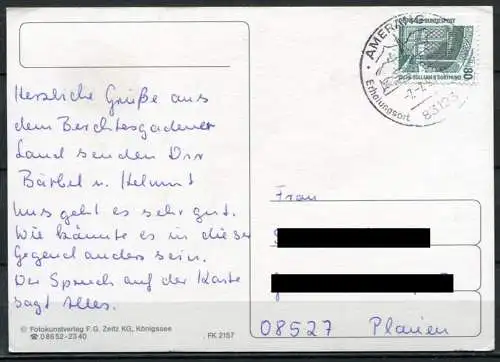 Herzliche Grüße aus
dem Berchtesgadener
Land senden Dir
Bärbel u. Helmut
Uns geht es sehr gut.
Wie könnte es in dieser
Gegend anders sein.
Der Spruch auf der Karte
sagt Alles.
© Fotokunstverlag F. G. Zeitz KG, Königssee
☎ 0 86 52 - 23 40
FK 2157
AMERANG
Erholungsort
83123
80
Frau
08527 Plauen